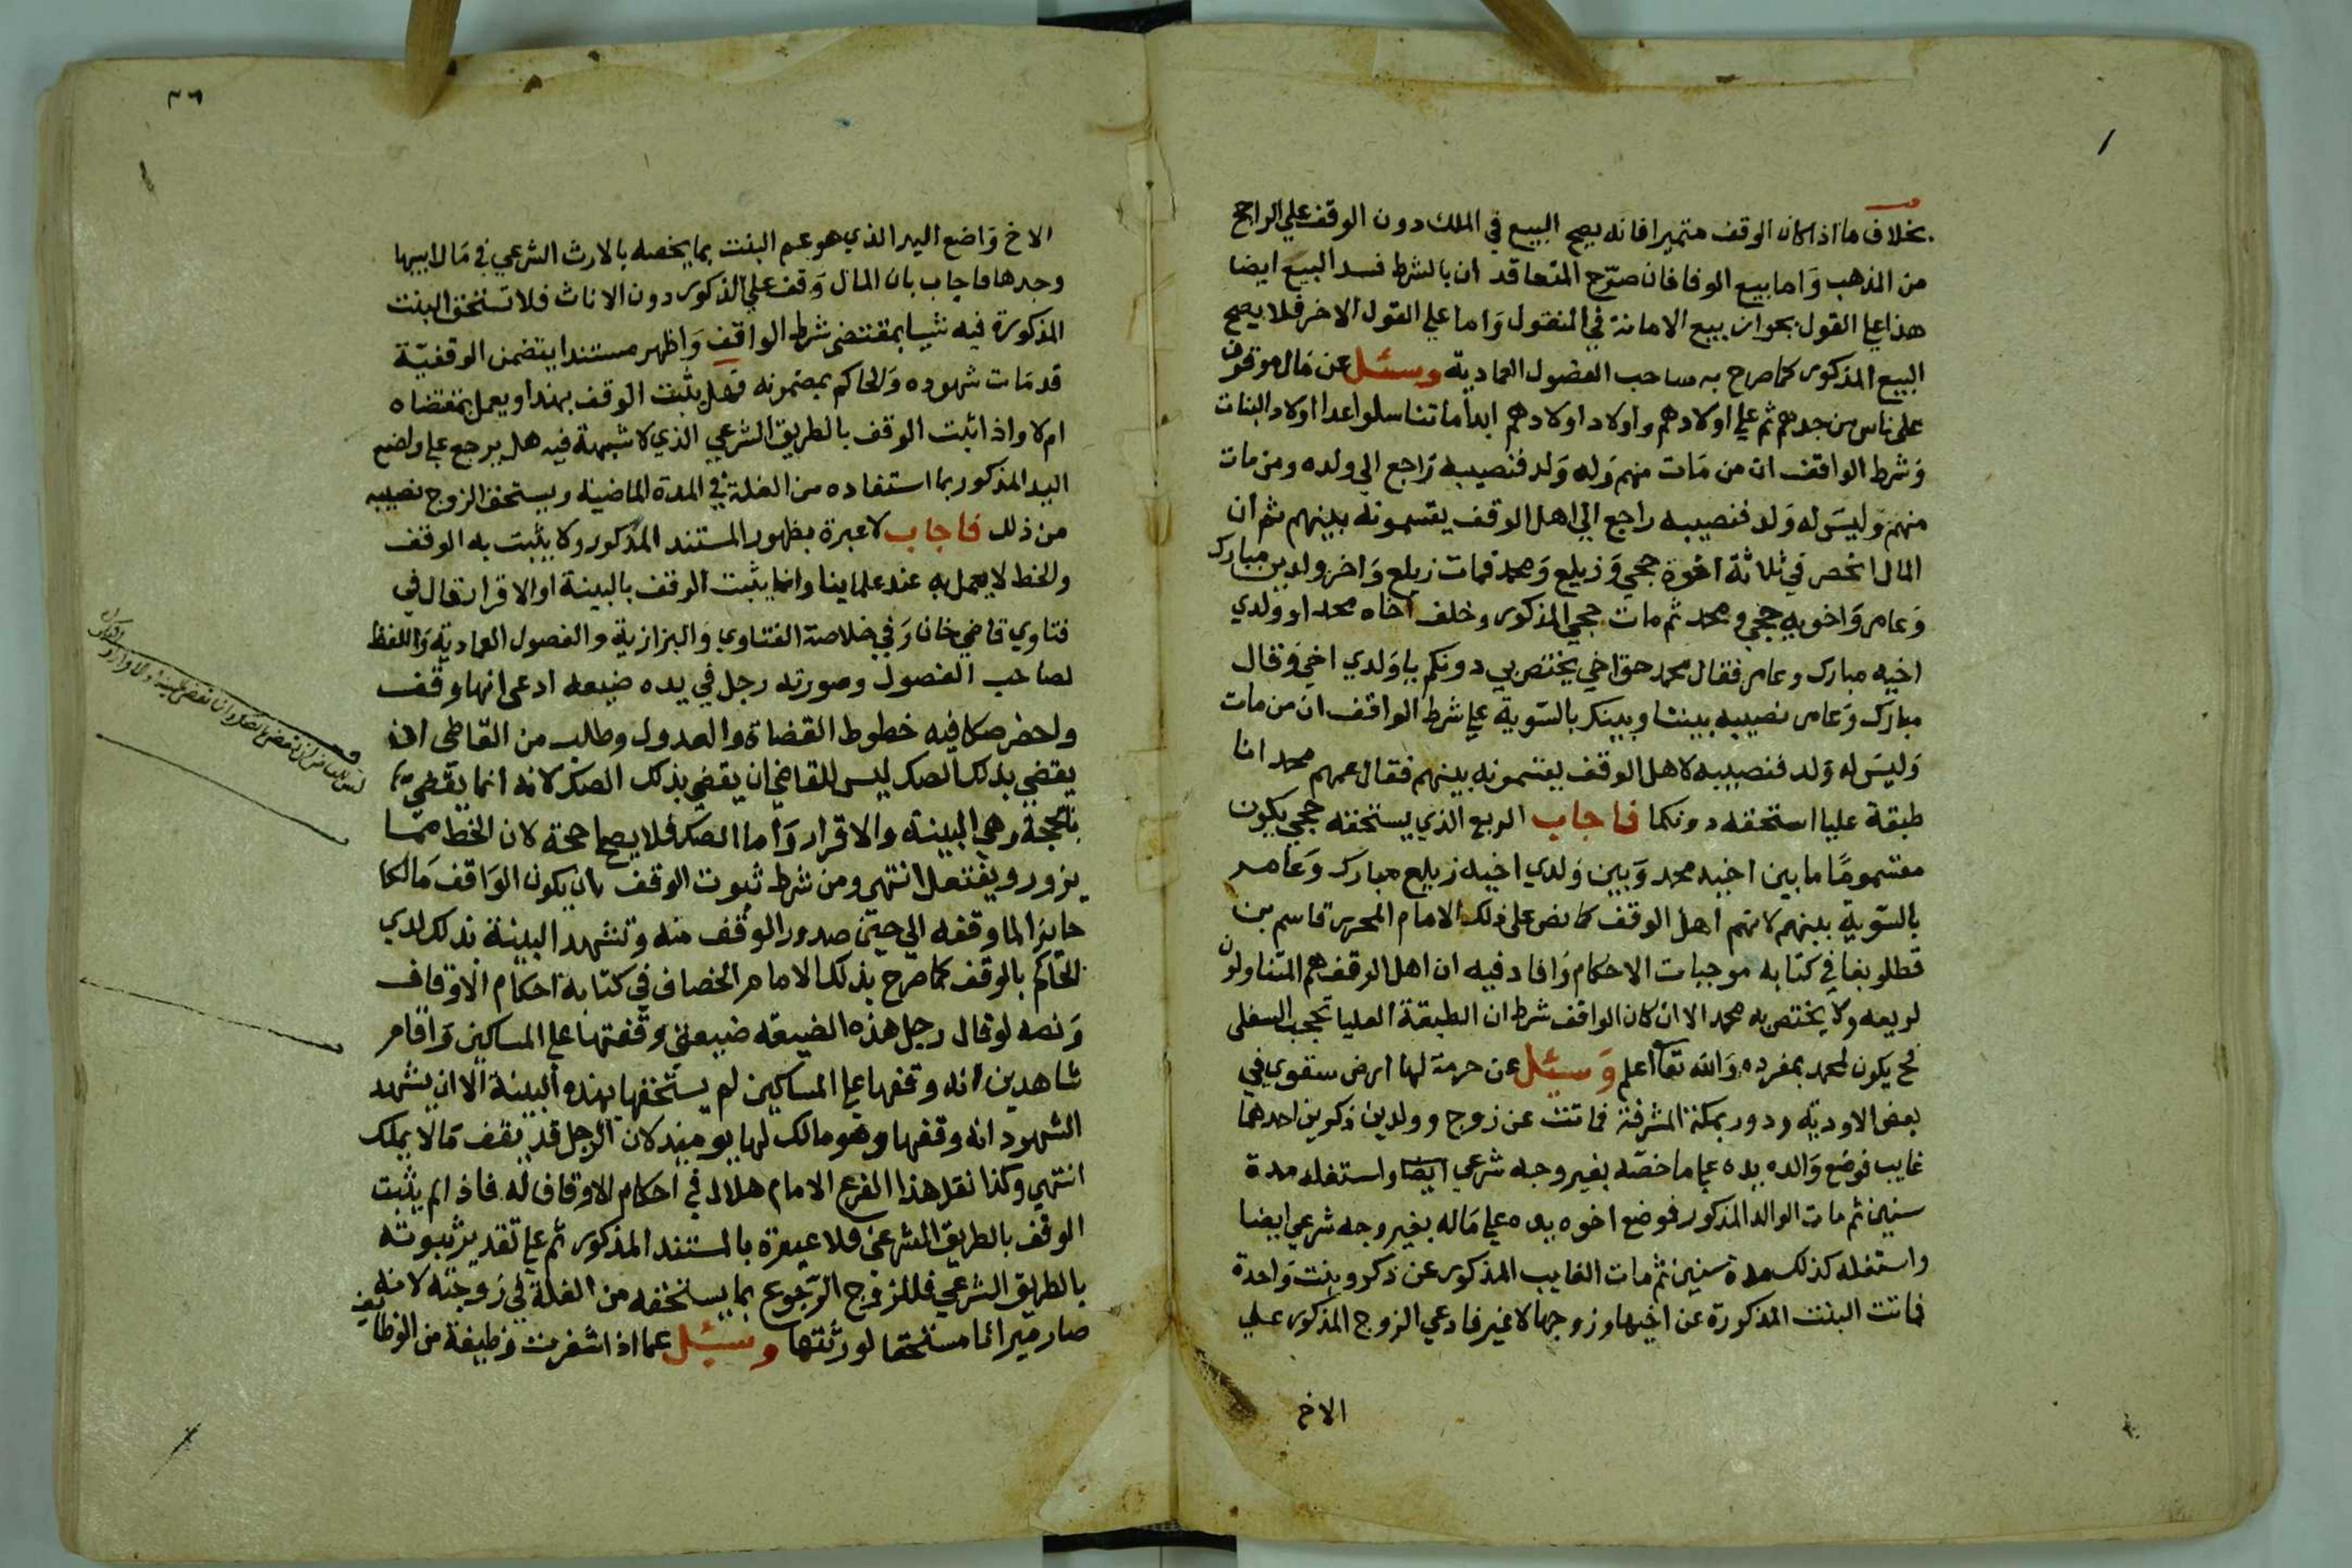 بخلاف ما اذا كان الوقف متميزا فانه يصح البيع في الملك دون الوقف علي الراجح
من المذهب وَاما بيع الوفا فان صرّح المتعاقد ان بالشرط فسد البيع ايضا
هذا علي القول بجواز بيع الامانة في المنقول وَاما علي القول الاخر فلا يصح
البيع المذكور كما صرح به صاحب الفصول العمادية وسئل عن مال موقوف
على ناس من جدهم ثم علي اولادهم واولاد اولادهم ابدا ما تناسلوا عدا اولاد البنات
وَشرط الواقف ان من مَات منهم وَله وَلد فنصيبه رَاجع الي ولده ومن مات
منهم وَليسَ له وَلد فنصيبه راجع الي اهل الوقف يقسمونه بينهم ثم ان
المال انحصر في ثلاثة اخوة حجي وَزيلع وَمحمد فمات زيلع وَاخر ولدين مبارك
وَعامر وَاخويه حجي ومحمد ثم مات حجي المذكور وخلف اخاه محمد او ولدي
اخيه مبارك وعامر فقال محمد حق اخي يختص بي دونكم ياوَلدي اخي وَقال
مبارك وَعامر نصيبه بيننا وبينكر بالسّوية علي شرط الواقف ان من مات
وَليسَ له وَلد فنصيبه لاهل الوقف يقتسمونه بينهم فقال عمهم محمد انا
طبقة عليا استحقه دونكما فاجاب الربع الذي يستحقه حجي يكون
مقسومًا ما بين اخيه محمد وَبين وَلدي اخيه زيلع مبارك وَعامر
بالسّوية بينهم لانهم اهل الوقف كما نص على ذلك الامام المحرر قاسم بن
قطلوبغا في كتابه موجبات الاحكام وَافاد فيه ان اهل الوقف هم المتناولون
لريعه ولا يختص به محمد الا ان كان الواقف شرط ان الطبقة العليا تحجب السفلى
فح يكون لمحمد بمفرده وَالله تعا اعلم وَسئل عن حرمة لها ارض سقوي في
بعض الاودية ودور بمكة المشرفة فماتت عن زوج وولدين ذكرين احدهما
غايب فوضع وَالده يده علي ما خصّه بغير وجه شرعي ايضا واستغله مدة
سنين ثم مات الوالد المذكور فوضع اخوه يده علي مَاله بغير وجه شرعي ايضا
واستغله كذلك مدة سنين ثم مات الغايب المذكور عن ذكر وبنت وَاحدة
فماتت البنت المذكورة عن اخيها وزوجها لاغير فادعي الزوج المذكور علي
الاخ
٣٦
الاخ وَاضع اليد الذي هو عم البنت بما يخصه بالارث الشرعي في مَال ابيها
وجدها فاجاب بان المال وَقف علي الذكور دون الاناث فلا تستحق البنت
المذكورة فيه شيا بمقتضي شرط الواقف وَاظهر مستندا يتضمن الوقفيّة
قد مَات شهوده وَالحاكم بمضمونه فهل يثبت الوقف بهذا ويعمل بمقتضاه
ام لا واذا ثبت الوقف بالطريق الشرعي الذي لا شبهة فيه هل يرجع علي واضع
اليد المذكور بما استفاده من الغلة في المدة الماضية ويستحق الزوج نصيبه
من ذلك فاجاب لا عبرة بظهور المستند المذكور ولا يثبت به الوقف
والخط لا يعمل به عند علماينا وانما يثبت الوقف بالبينة او الاقرار قال في
فتاوي قاضي خان وَفي خلاصة الفتاوي وَالبزازية والفصول العمادية وَاللفظ
لصاحب الفصول وصورته رجل في يده ضيعه ادعى انها وقف
واحضر صكا فيه خطوط القضاة والعدول وطلب من القاضي ان
يقضي بذلك الصك ليس للقاضي ان يقضي بذلك الصك لانه انما يقضي
بالحجة وهي البينة والاقرار وَأما الصك فلا يصح حجة لان الخط ممّا
يزور ويفتعل انتهى ومن شرط ثبوت الوقف بان يكون الوَاقف مَالكا
حايزا لما وقفه الي حين صدور الوَقف منه وتشهد البينة بذلك لدي
الحَاكم بالوقف كما صرح بذلك الامام الخصاف في كتابه احكام الاوقاف
وَنصه لو قال رجل هذه الضيعه ضيعتي وقفتها علي المساكين وَاقام
شاهدين انه وقفها علي المساكين لم يستحقها بهذه البينة الا ان يشهد
الشهود انه وقفها وهو مالك لها يوميذ لان الرجل قد يقف مَالا يملك
انتهي وكذا نقل هذا الفرع الامام هلال في احكام الاوقاف له فاذا لم يثبت
الوقف بالطريق الشرعي فلا عبرة بالمستند المذكور ثم علي تقدير ثبوته
بالطريق الشرعي فللزوج الرّجوع بما يستحقه من الغلة في زوجته لانه
صار ميراثا مستحقا لورثتها وسئل عما اذا اشغرت وَظيفة من الوظايف